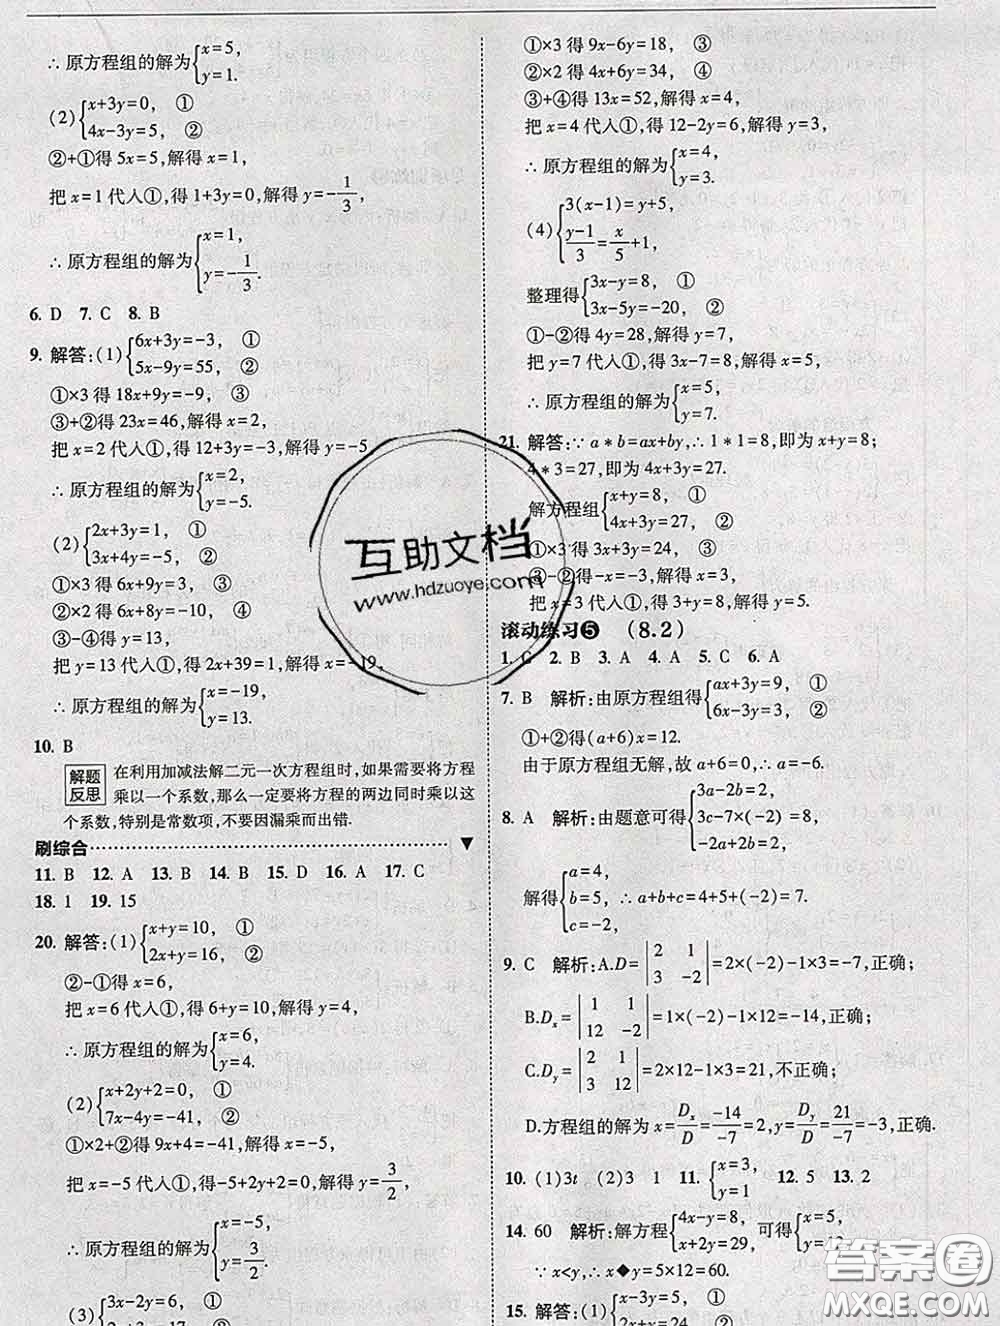 ∴ 原方程组的解为{x=5, y=1.
(2){x+3y=0, ① 4x-3y=5, ②
②+①得 5x=5,解得 x=1,
把 x=1 代入①,得 1+3y=0,解得 y=-1/3,
∴ 原方程组的解为{x=1, y=-1/3.
6. D 7. C 8. B
9. 解答:(1){6x+3y=-3, ① 5x-9y=55, ②
①×3 得 18x+9y=-9, ③
③+②得 23x=46,解得 x=2,
把 x=2 代入①,得 12+3y=-3,解得 y=-5
∴ 原方程组的解为{x=2, y=-5.
(2){2x+3y=1, ① 3x+4y=-5, ②
①×3 得 6x+9y=3, ③
②×2 得 6x+8y=-10, ④
③-④得 y=13,
把 y=13 代入①,得 2x+39=1,解得 x=-19,
∴ 原方程组的解为{x=-19, y=13.
10. B
解题反思 在利用加减法解二元一次方程组时,如果需要将方程
乘以一个系数,那么一定要将方程的两边同时乘以这
个系数,特别是常数项,不要因漏乘而出错.
刷综合
11. B 12. A 13. B 14. B 15. D 16. A 17. C
18. 1 19. 15
20. 解答:(1){x+y=10, ① 2x+y=16, ②
②-①得 x=6,
把 x=6 代入①,得 6+y=10,解得 y=4,
∴ 原方程组的解为{x=6, y=4.
(2){x+2y+2=0, ① 7x-4y=-41, ②
①×2+②得 9x+4=-41,解得 x=-5,
把 x=-5 代入①,得-5+2y+2=0,解得 y=3/2,
∴ 原方程组的解为{x=-5, y=3/2.
(3){3x-2y=6, ① 2x+3y=17, ②
①×3 得 9x-6y=18, ③
②×2 得 4x+6y=34, ④
③+④得 13x=52,解得 x=4,
把 x=4 代入①,得 12-2y=6,解得 y=3,
∴ 原方程组的解为{x=4, y=3.
(4){3(x-1)=y+5, (y-1)/3=x/5+1,
整理得{3x-y=8, ① 3x-5y=-20, ②
①-②得 4y=28,解得 y=7,
把 y=7 代入①,得 3x-7=8,解得 x=5,
∴ 原方程组的解为{x=5, y=7.
21. 解答:∵ a*b=ax+by,∴ 1*1=8,即为 x+y=8;
4*3=27,即为 4x+3y=27.
解方程组{x+y=8, ① 4x+3y=27, ②
①×3 得 3x+3y=24, ③
③-②得-x=-3,解得 x=3,
把 x=3 代入①,得 3+y=8,解得 y=5.
滚动练习❺ (8.2)
1. C 2. B 3. A 4. A 5. C 6. A
7. B 解析:由原方程组得{ax+3y=9, ① 6x-3y=3, ②
①+②得(a+6)x=12.
由于原方程组无解,故 a+6=0,∴ a=-6.
8. A 解析:由题意可得{3a-2b=2, 3c-7×(-2)=8, -2a+2b=2,
解得{a=4, b=5, c=-2, ∴ a+b+c=4+5+(-2)=7.
9. C 解析:A.D=|2 1; 3 -2|=2×(-2)-1×3=-7,正确;
B.Dx=|1 1; 12 -2|=1×(-2)-1×12=-14,正确;
C.Dy=|2 1; 3 12|=2×12-1×3=21,不正确;
D.方程组的解为 x=Dx/D=-14/-7=2,y=Dy/D=21/-7=-3,正确.
10. (1)3t (2)3 1 11. {x=3, y=1 12. 5 13. 2
14. 60 解析:解方程{4x-y=8, x+2y=29, 可得{x=5, y=12.
∵ x<y,∴ x◆y=5×12=60.
15. 解答:(1){x-3y=5, ①
互助文档
www.hdzuoye.com
答案圈
MXQE.COM